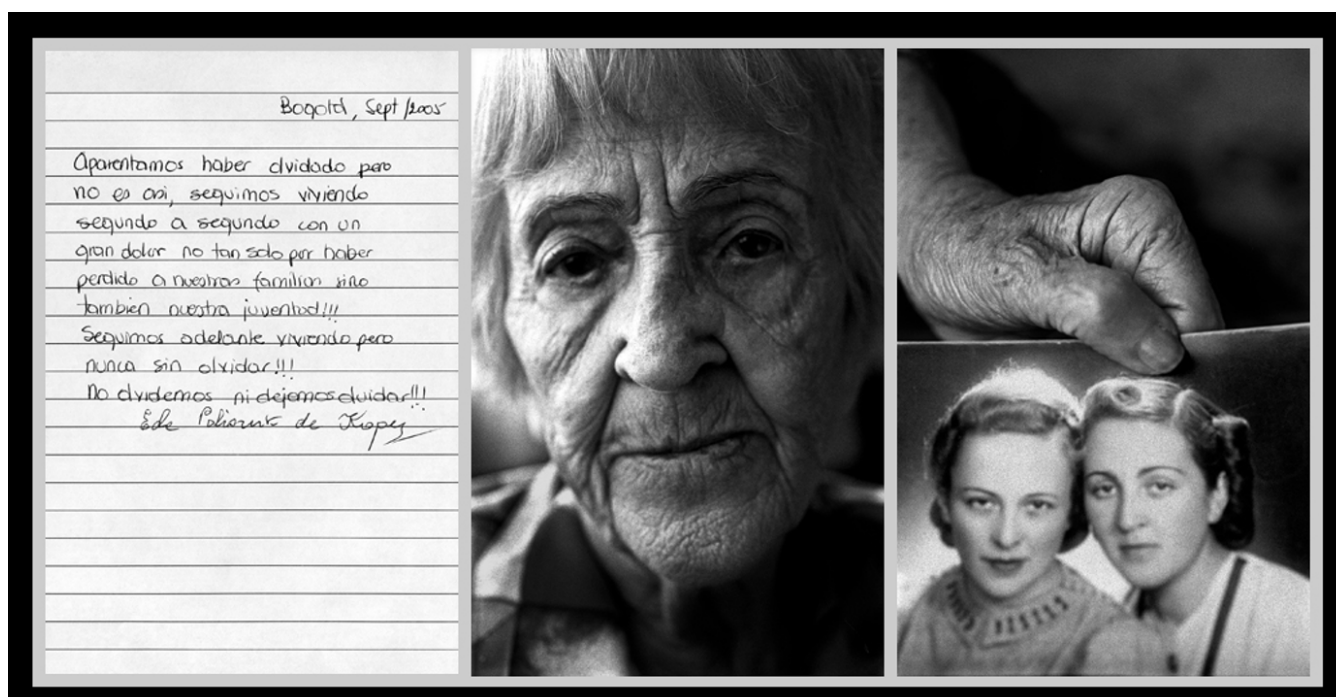 Bogotá, Sept/2005
Aparentamos haber olvidado pero
no es asi, seguimos viviendo
segundo a segundo con un
gran dolor no tan solo por haber
perdido a nuestras familias sino
tambien nuestra juventud!!!
Seguimos adelante viviendo pero
nunca sin olvidar!!!
No olvidemos ni dejemos olvidar!!!
de